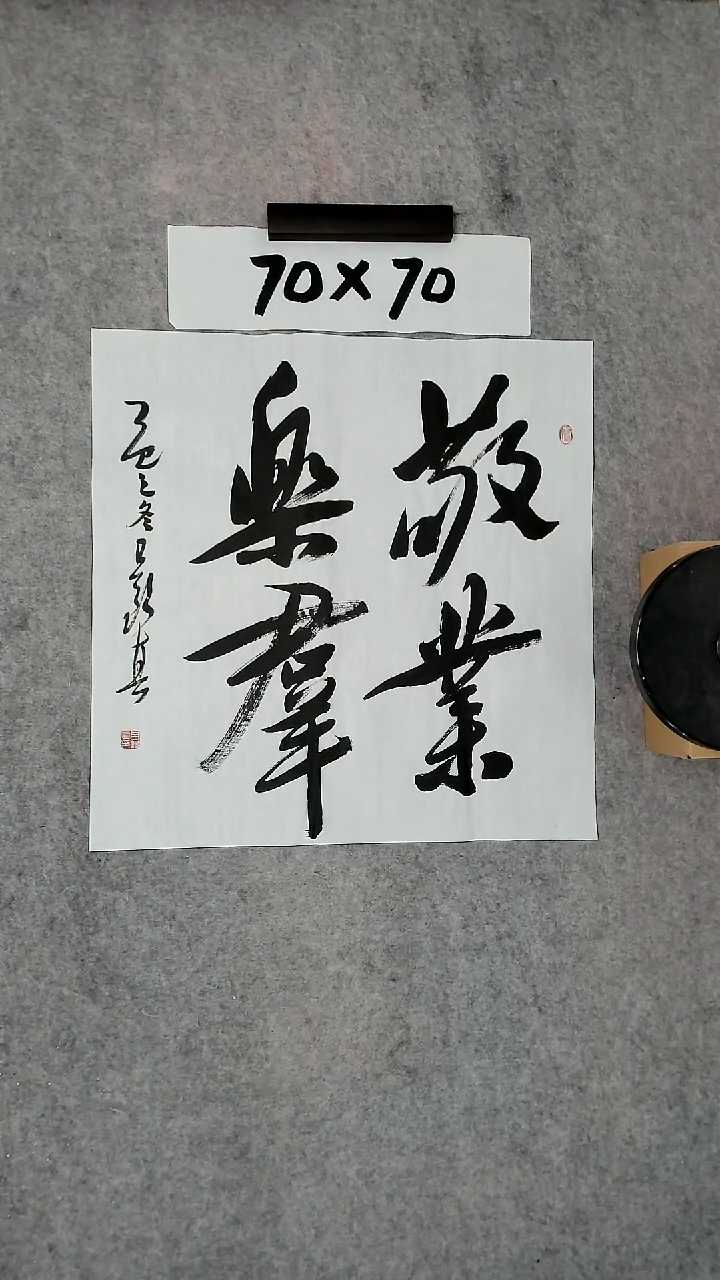 70×70
敬業
樂羣
乙巳之冬